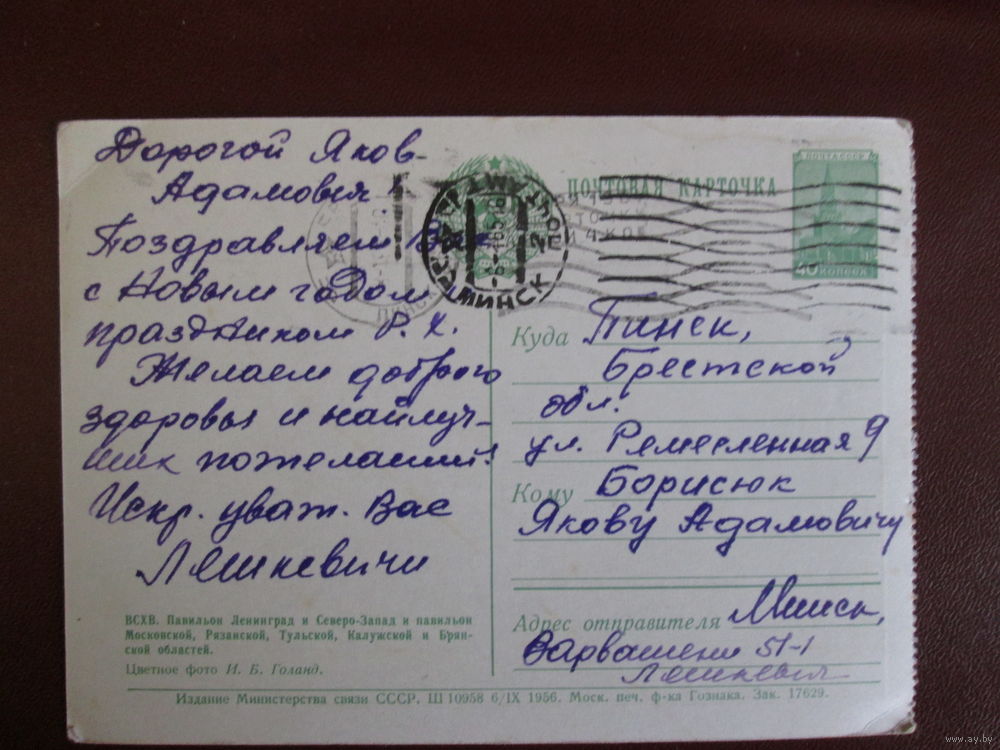 Дорогой Яков
Адамович
Поздравляем Вас
с Новым годом
праздником Р. Х.
Желаем доброго
здоровья и найлуч-
ших пожеланий!
Искр. уваж. Вас
Ляшкевичи
ВСХВ. Павильон Ленинград и Северо-Запад и павильон
Московской, Рязанской, Тульской, Калужской и Брян-
ской областей.
Цветное фото И. Б. Голанд.
ПОЧТОВАЯ КАРТОЧКА
ПОЧТА СССР
40 КОПЕЕК
МИНСК
Куда Пинск,
Брестской
обл.
ул. Ремесленная 9
Кому Борисюк
Якову Адамовичу
Адрес отправителя Минск,
Варвашени 51-1
Ляшкевич
Издание Министерства связи СССР. Ш 10958 6/IX 1956. Моск. печ. ф-ка Гознака. Зак. 17629.
www.ay.by